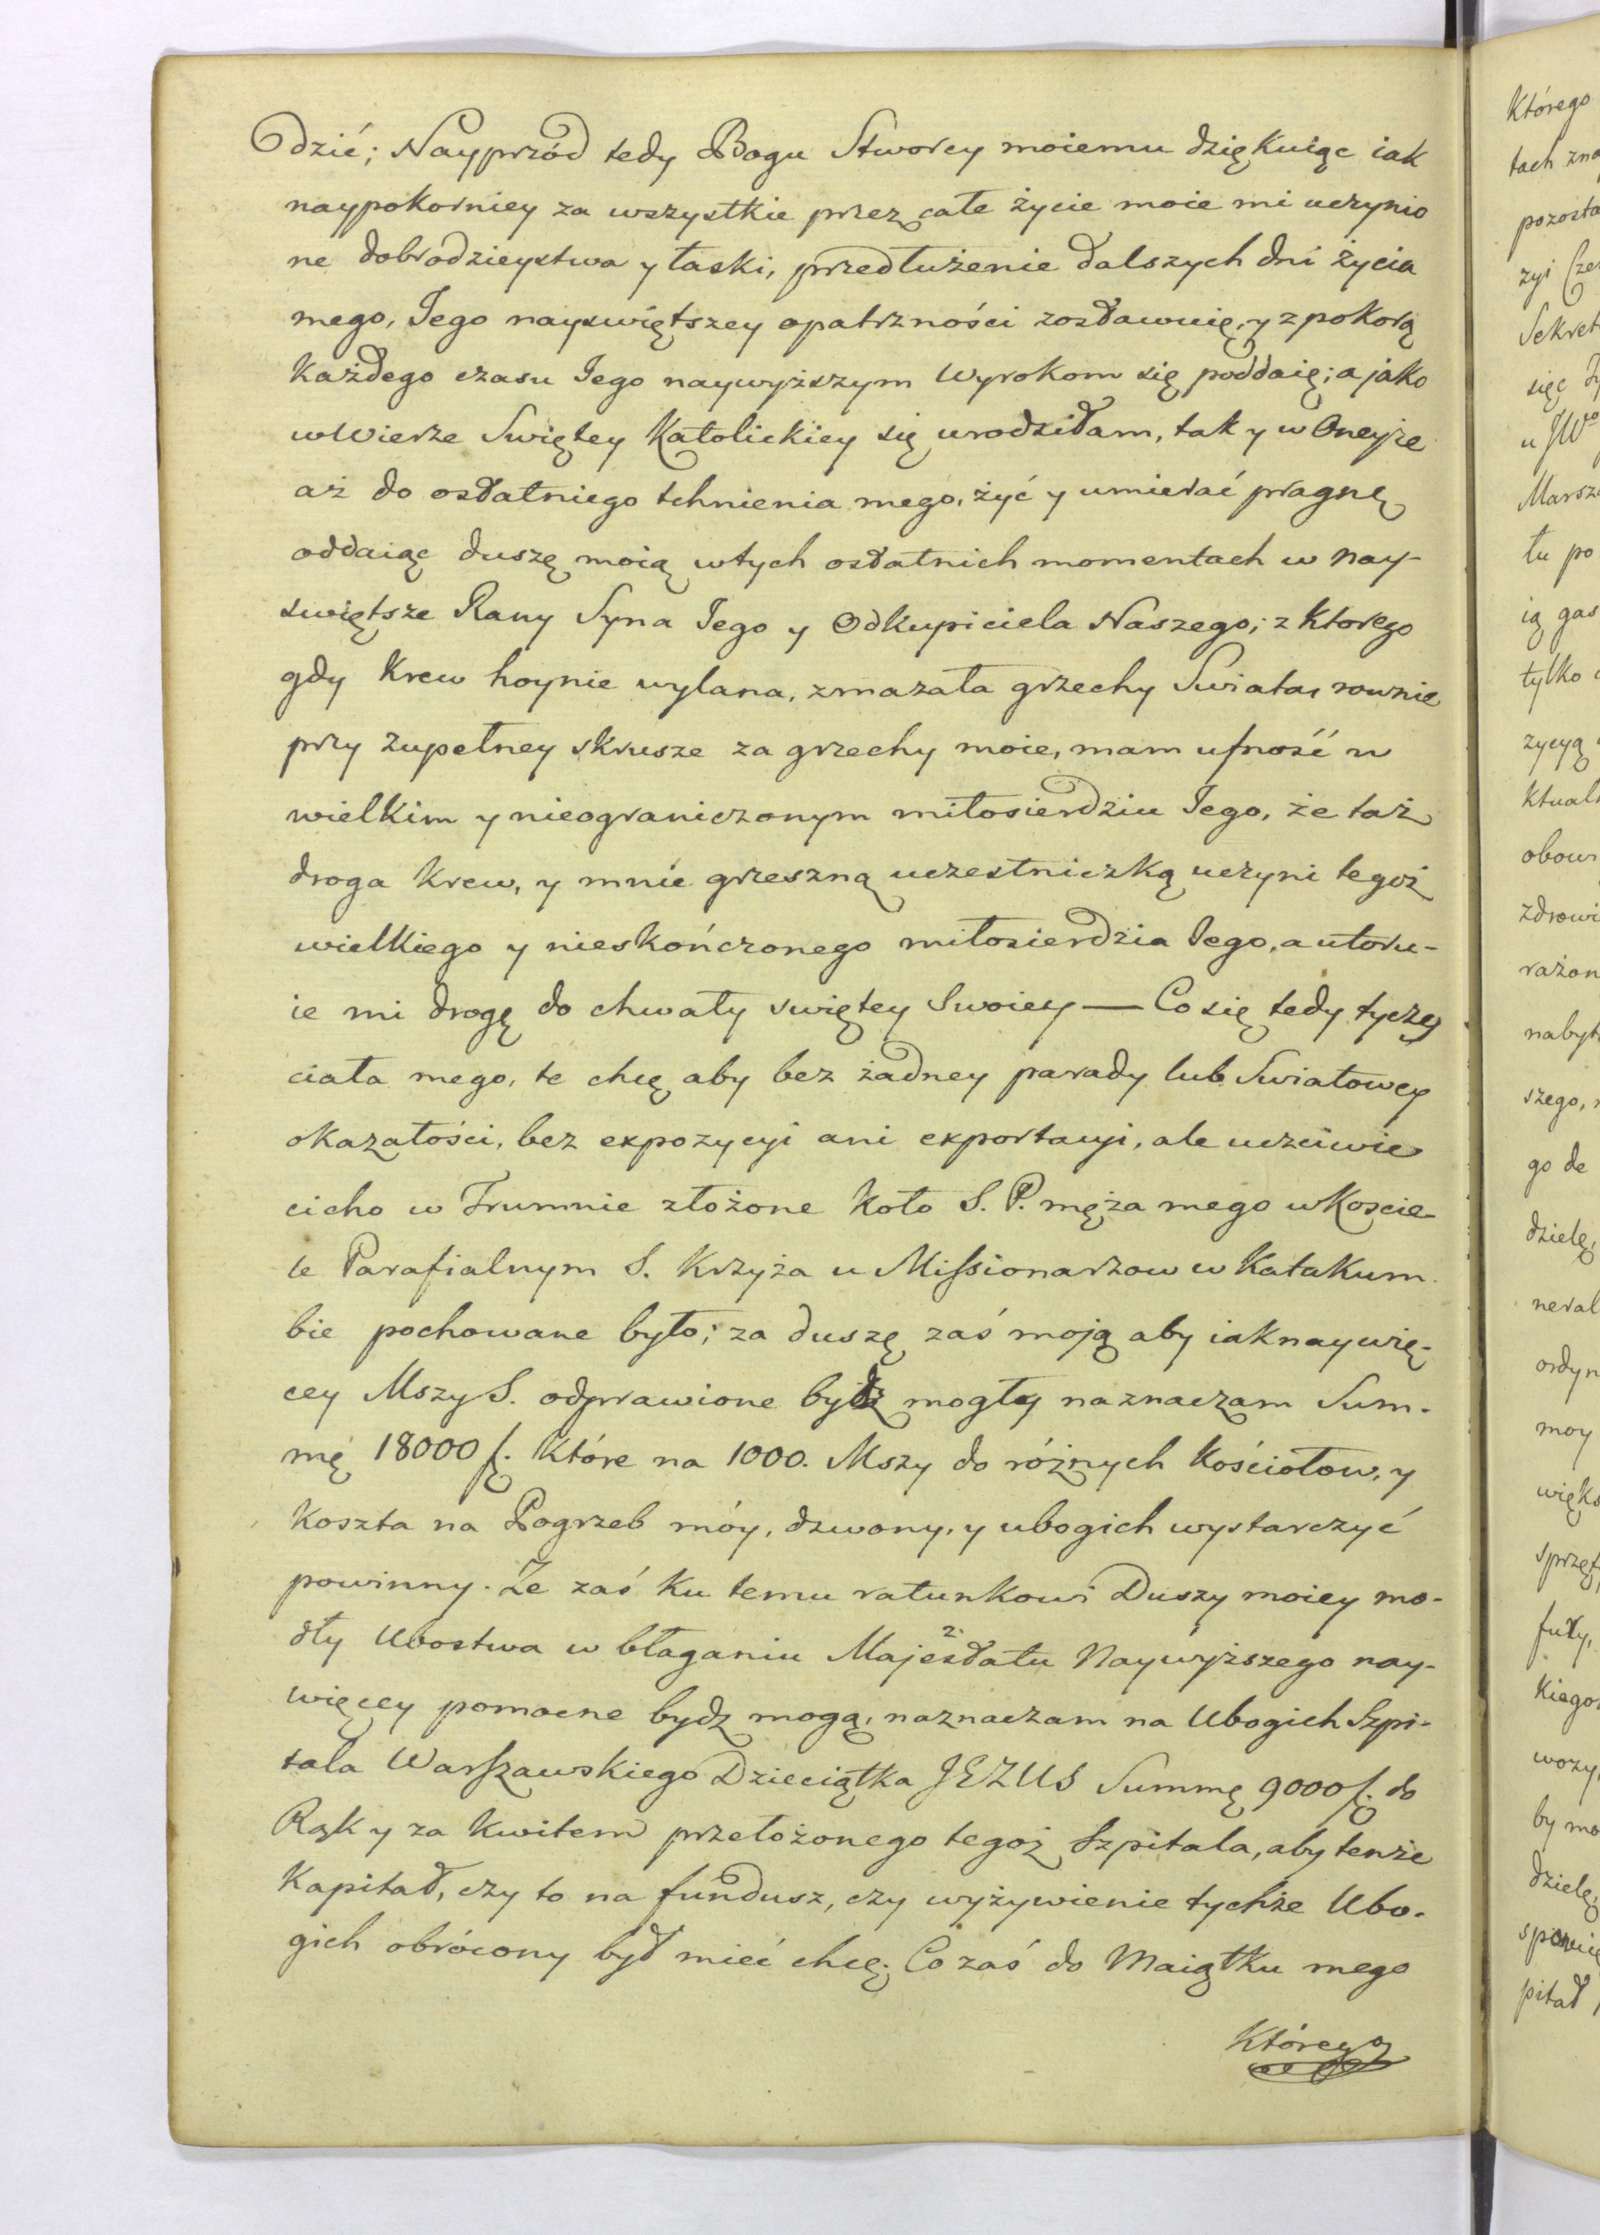 dzić; Nayprzód tedy Bogu Stworcy moiemu dziękuiąc iak
naypokorniey za wszystkie przez całe życie moie mi uczynio
ne dobrodzieystwa y łaski, przedłużenie dalszych dni życia
mego, Jego nayswiętszey opatrzności zostawuię, y z pokorą
każdego czasu Jego naywyższym Wyrokom się poddaię; a jako
w Wierze Swiętey Katolickiey się urodziłam, tak y w Oneyże
aż do ostatniego tchnienia mego, żyć y umierać pragnę
oddaiąc duszę moią w tych ostatnich momentach w nay-
swiętsze Rany Syna Jego y Odkupiciela Naszego; z ktorego
gdy Krew hoynie wylana, zmazała grzechy Swiata, rownie
przy zupełney skrusze za grzechy moie, mam ufność w
wielkim y nieograniczonym miłosierdziu Jego, że taż
droga Krew, y mnie grzeszną uczestniczką uczyni tegoż
wielkiego y nieskończonego miłosierdzia Jego, a utoru-
ie mi drogę do chwały swiętey Swoiey — Co się tedy tycze
ciała mego, te chcę aby bez żadney parady lub Swiatowey
okazałości, bez expozycyi ani exportacyi, ale uczciwie
cicho w Trumnie złożone koło S. P. męża mego w Koscie-
le Parafialnym S. Krzyża u Missionarzow w Katakum
bie pochowane było; za duszę zaś moją aby iaknaywię-
cey Mszy S. odprawione bydź mogły naznaczam Sum-
mę 18000 f. które na 1000. Mszy do różnych Kościołow, y
koszta na Pogrzeb móy, dzwony, y ubogich wystarczyć
powinny. Że zaś ku temu ratunkowi Duszy moiey mo-
dły Ubostwa w błaganiu Majestatu Naywyższego nay-
więcey pomocne bydz mogą, naznaczam na Ubogich Szpi-
tala Warszawskiego Dzieciątka JEZUS Summę 9000 f. do
Rąk y za kwitem przełożonego tegoż Szpitala, aby tenże
Kapitał, czy to na fundusz, czy wyżywienie tychże Ubo-
gich obrócony był mieć chcę. Co zaś do Maiątku mego
Którego
tach
się
Marsz
tu po
ią
tylko
go de
moy
by